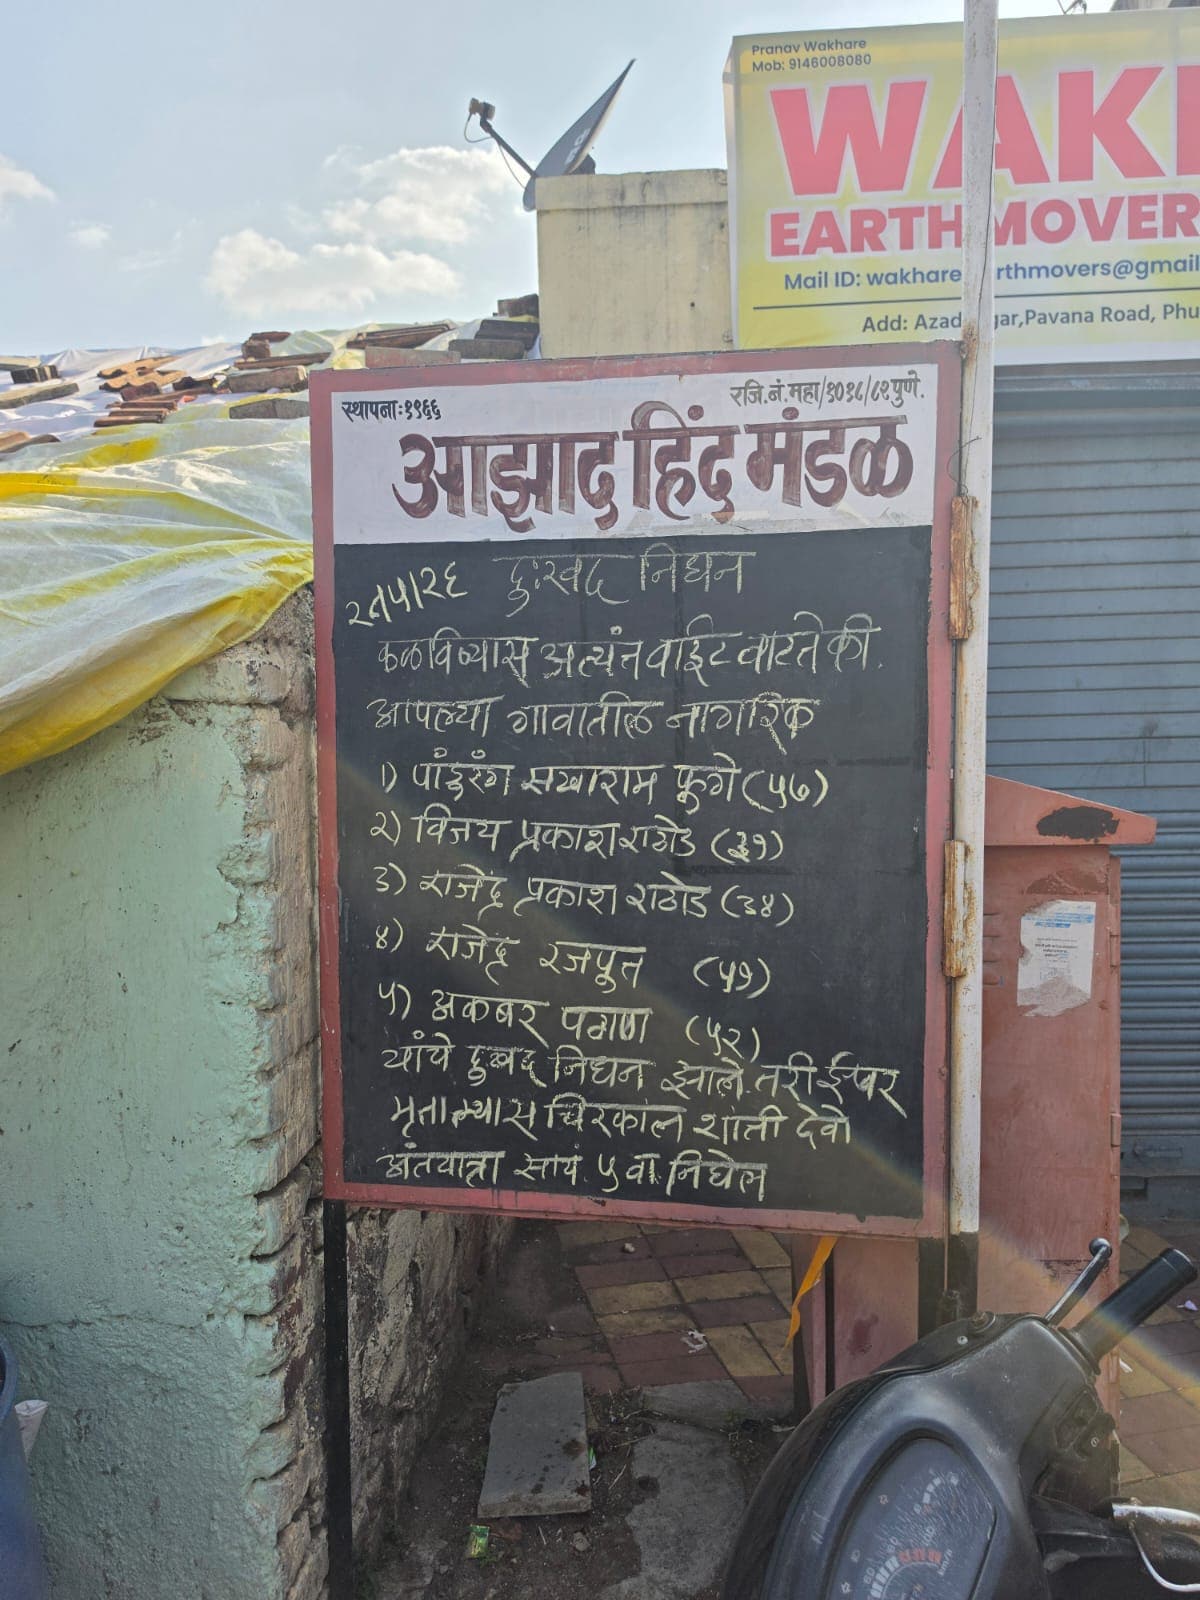 Pranav Wakhare
Mob: 9146008080
WAK
EARTHMOVER
Mail ID: wakhare rthmovers@gmail
Add: Azad gar,Pavana Road, Phu
स्थापना:१९६६
रजि.नं.महा/१०१८/८१पुणे.
आझाद हिंद मंडळ
दुःखद निधन
कळविण्यास अत्यंत वाईट वाटते की.
आपल्या गावातील नागरिक
१) पांडुरंग सखाराम फुगे (५७)
२) विजय प्रकाश राठोड (३१)
३) राजेंद्र प्रकाश राठोड (३४)
४) राजेंद्र रजपुत (५१)
५) अकबर पठाण (५२)
यांचे दुखद निधन झाले. तरी ईश्वर
मृतात्म्यास चिरकाल शांती देवो
अंतयात्रा सायं. ५ वा निघेल